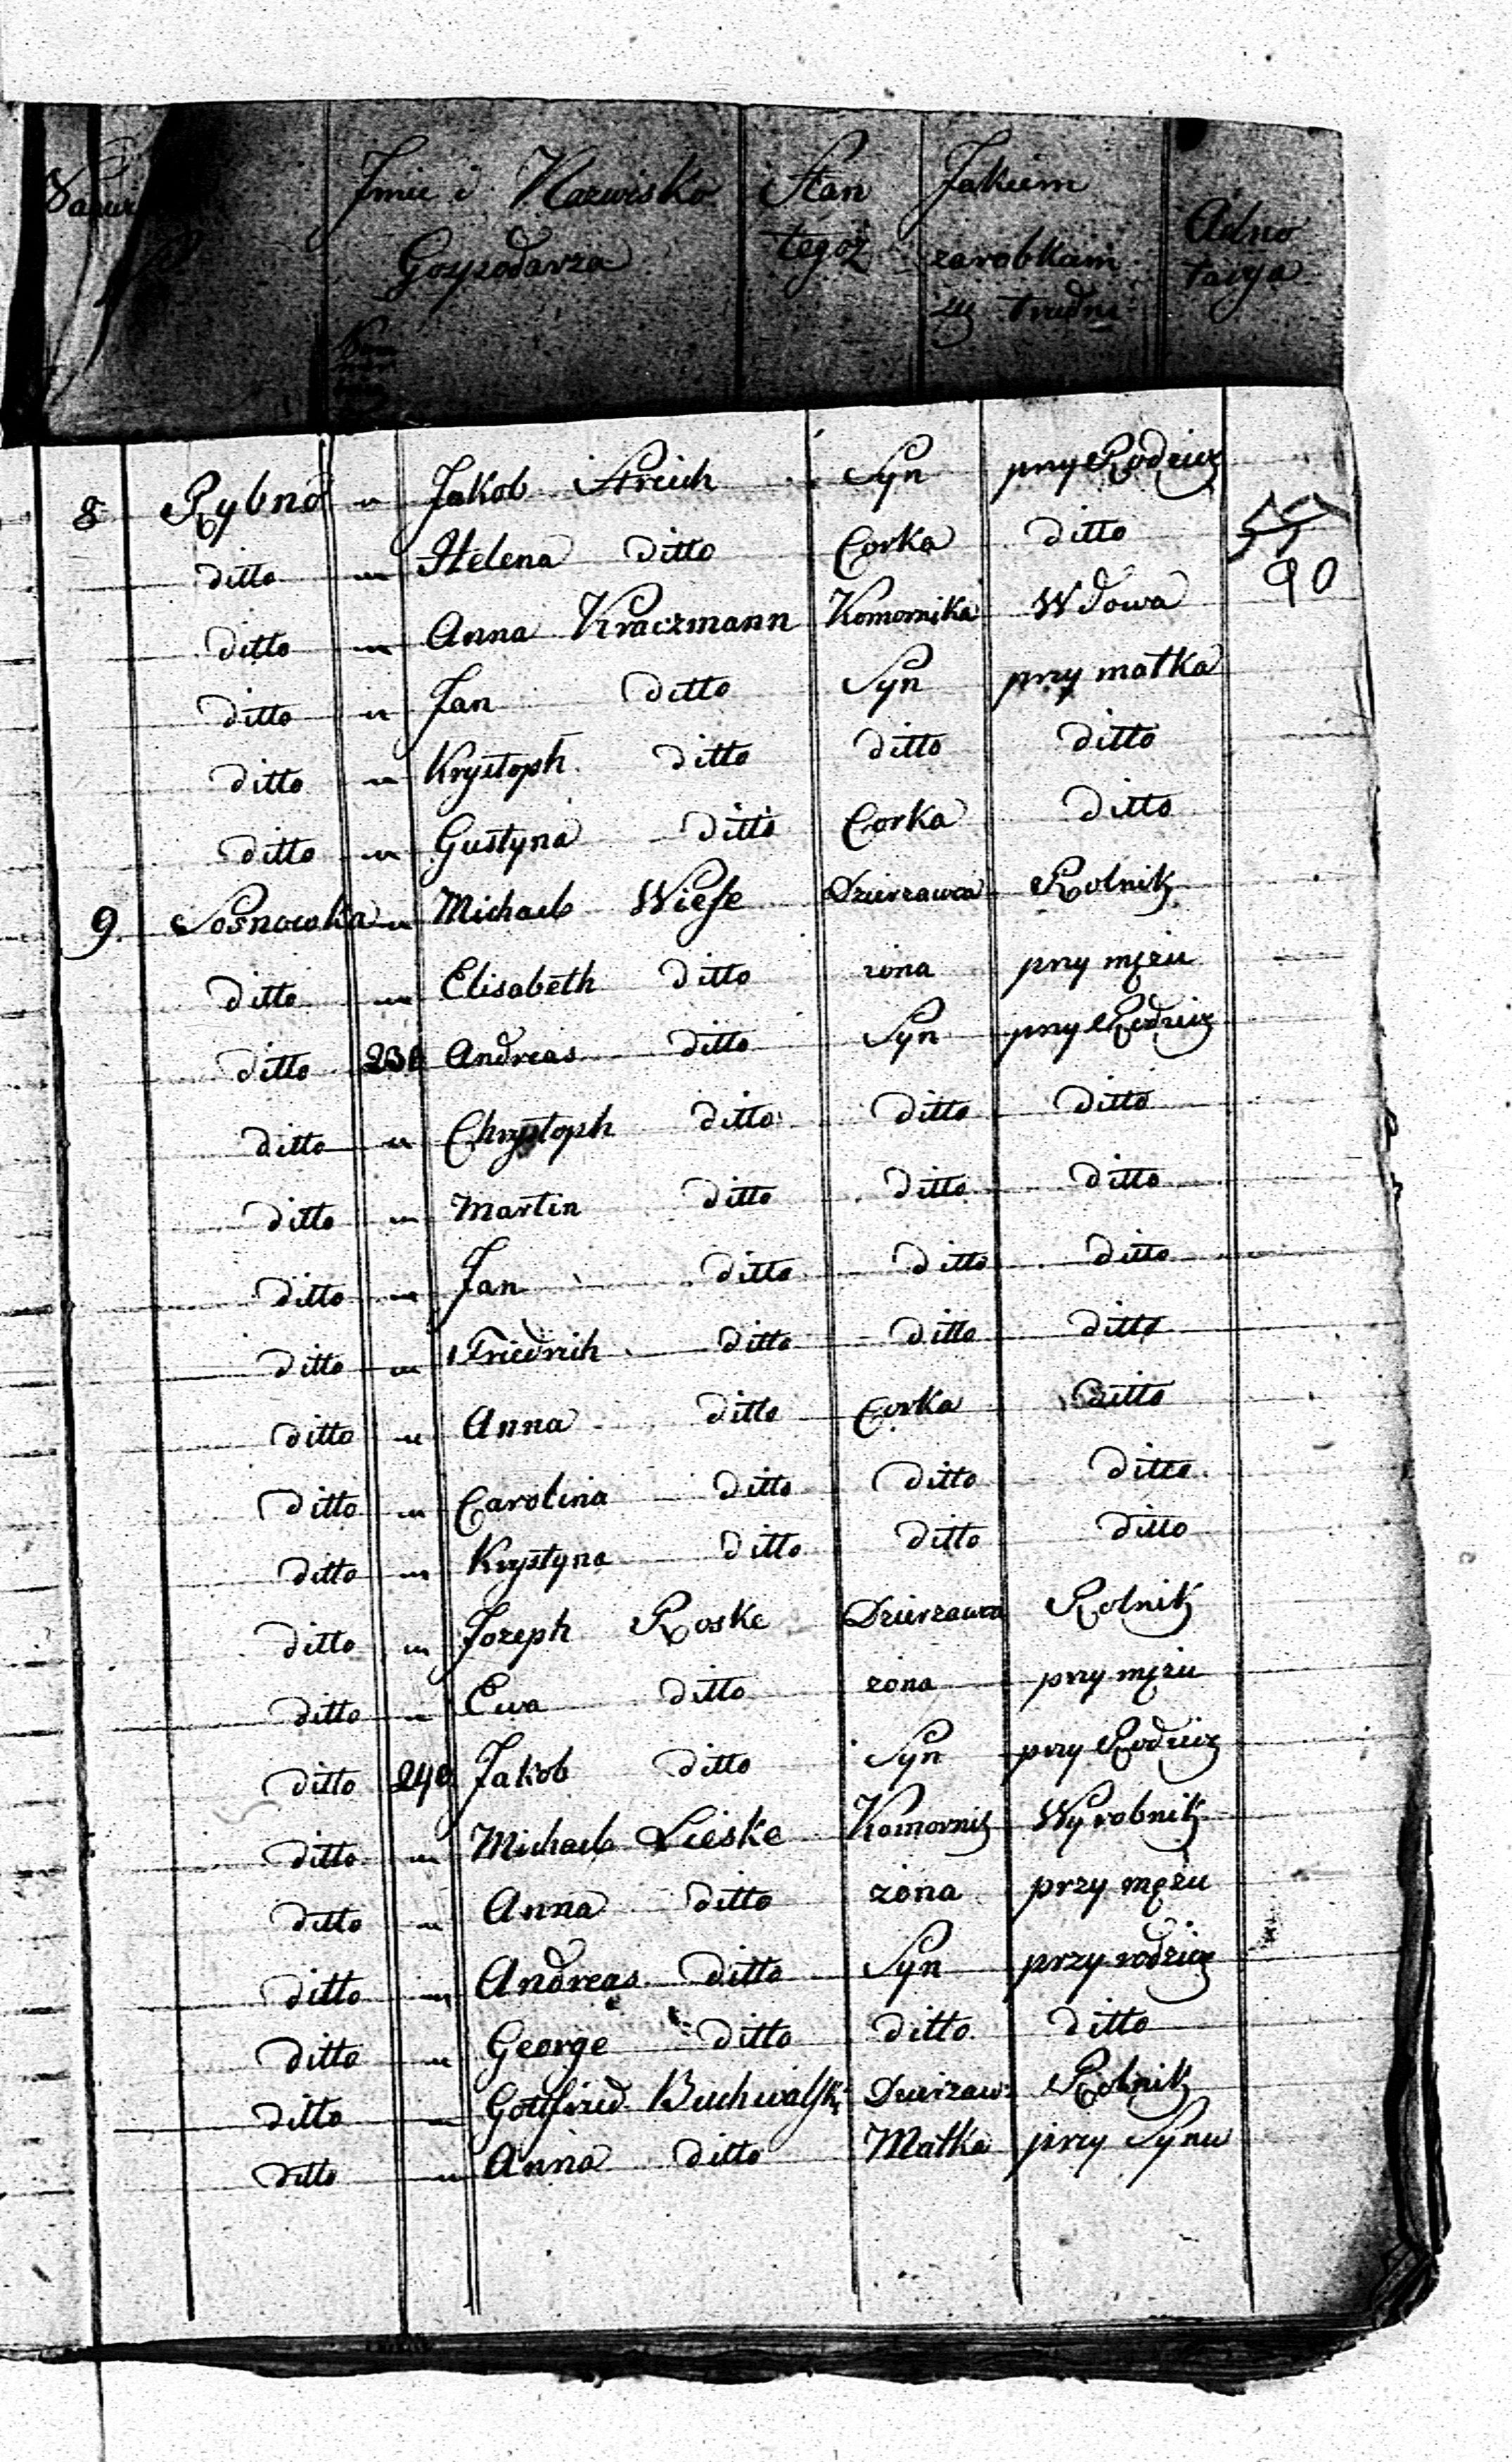 Imie i Nazwisko Gospodarza Stan tegoż Jakiem zarobkiem się trudni Adnotacya
8 Rybno " Jakob Streich Syn przy Rodzicz
ditto " Helena ditto Corka ditto 55
90
ditto " Anna Kraczmann Komornika Wdowa
ditto " Jan ditto Syn przy matka
ditto " Krystoph ditto ditto ditto
ditto " Gustyna ditto Corka ditto
9 Sosnowka " Michael Wiese Dzierzawca Rolnik
ditto " Elisabeth ditto zona przy mężu
ditto 230 Andreas ditto Syn przy Rodzicz
ditto " Chrystoph ditto ditto ditto
ditto " Martin ditto ditto ditto
ditto " Jan ditto ditto ditto
ditto " Friedrich ditto ditto ditto
ditto " Anna ditto Corka ditto
ditto " Carolina ditto ditto ditto
ditto " Krystyna ditto ditto ditto
ditto " Jozeph Roske Dzierzawca Rolnik
ditto " Ewa ditto zona przy mężu
ditto 240 Jakob ditto Syn przy Rodzicz
ditto " Michael Lieske Komornik Wyrobnik
ditto " Anna ditto zona przy mężu
ditto " Andreas ditto Syn przy rodzicz
ditto " George ditto ditto ditto
ditto " Gottfried Buchwalski Dzierzaw Rolnik
ditto " Anna ditto Matka przy Synu